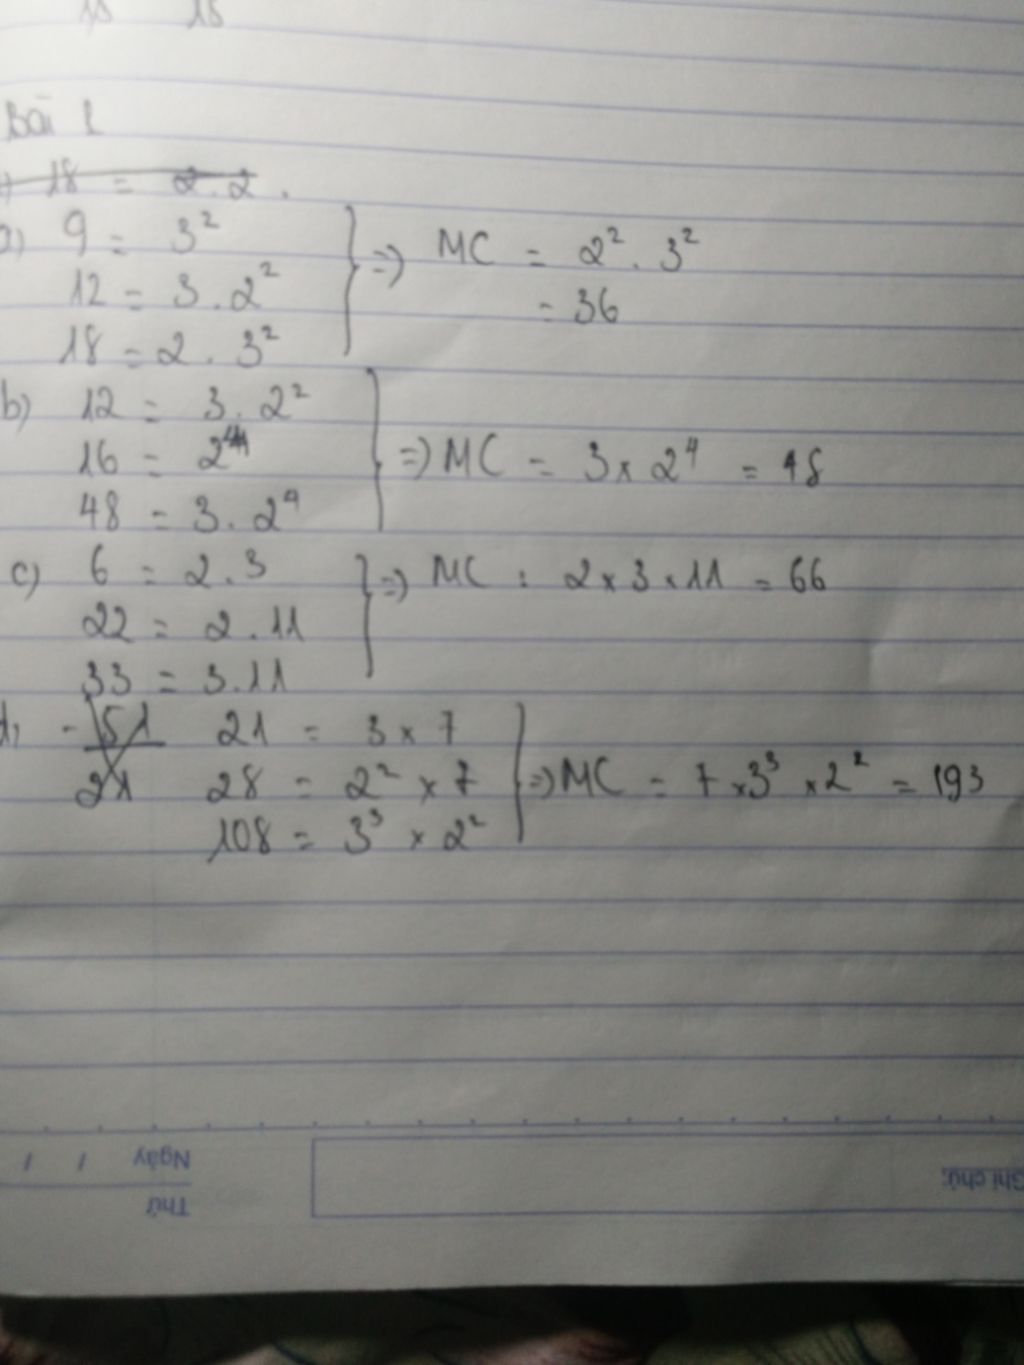 15 15
Bài 1
18 = 2.2.
a) 9 = 3²
12 = 3.2²
18 = 2.3²
=> MC = 2².3²
= 36
b) 12 = 3.2²
16 = 2⁴
48 = 3.2⁴
=> MC = 3 x 2⁴ = 48
c) 6 = 2.3
22 = 2.11
33 = 3.11
=> MC : 2 x 3 x 11 = 66
d, 21 = 3 x 7
28 = 2² x 7
108 = 3³ x 2²
=> MC = 7 x 3³ x 2² = 193
Ngày / /
Thứ
Ghi chú: